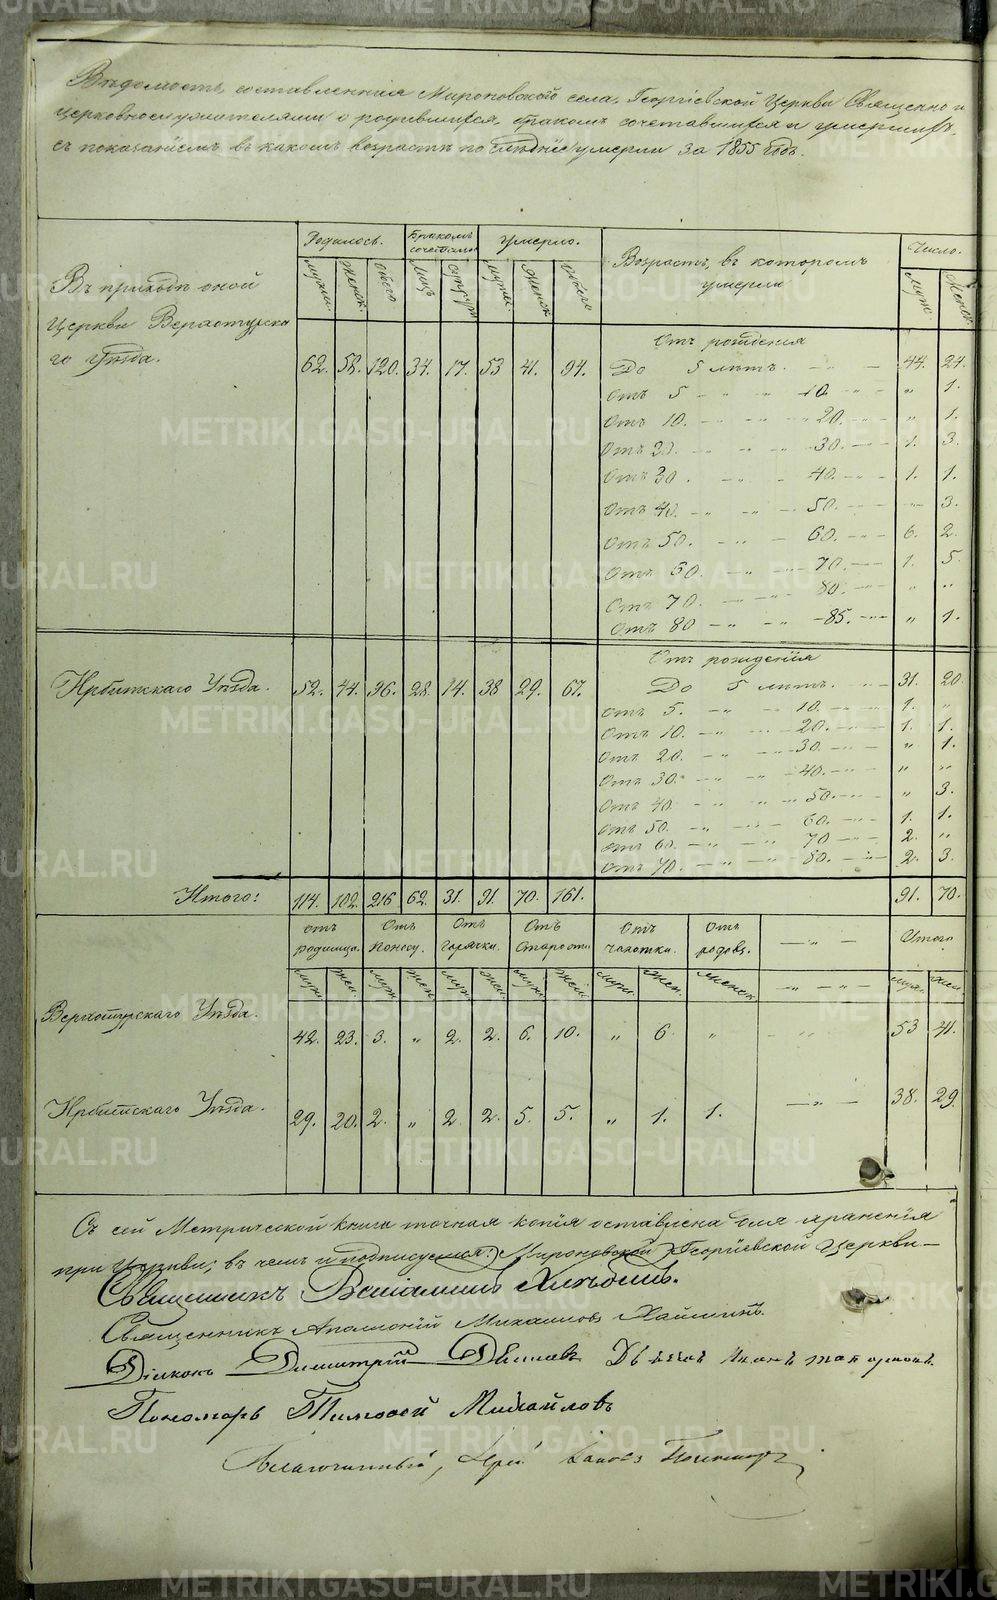 METRIKI.GASO-URAL.RU
Вѣдомость, составленная Мироновскаго села, Георгіевской Церкви Священно и
церковнослужителями о родившихся, бракомъ сочетавшихся и умершихъ,
съ показаніемъ въ какомъ возрастѣ по умерли за 1855 Годъ.
Родилось. Бракомъ сочетал. Умерло. Возрастъ, въ которомъ умерли Число.
Мужск. Женск. Обоего Лицъ Супруж. Мужск. Женск. Обоего Муж. Женск.
Въ приходѣ оной
Церкви Верхотурска
го Уѣзда.
Отъ рожденія
62. 58. 120. 34. 17. 53 41. 94. До 5 лѣтъ. 44. 24.
Отъ 5 10. „ 1.
Отъ 10. 20. „ 1.
Отъ 20. 30. 1. 3.
Отъ 30. 40. 1. 1.
Отъ 40. 50. „ 3.
Отъ 50. 60. 6. 2.
Отъ 60. 70. 1. 5.
Отъ 70. 80. „ „
Отъ 80 85. „ 1.
Отъ рожденія
Ирбитскаго Уѣзда. 52. 44. 96. 28. 14. 38 29. 67. До 5 лѣтъ. 31. 20.
Отъ 5. 10. 1. „
Отъ 10. 20. 1. 1.
Отъ 20. 30. „ 1.
Отъ 30. 40. „ „
Отъ 40. 50. „ 3.
Отъ 50. 60. 1. 1.
Отъ 60. 70 2. „
Отъ 70. 80. 2. 3.
Итого: 114. 102. 216 62. 31. 91. 70. 161. 91. 70.
Отъ родимца. Отъ поносу. Отъ горячки. Отъ старости. Отъ чахотки. Отъ родовъ. Итого
Муж. Жен. Муж. Жен. Муж. Жен. Муж. Жен. Муж. Жен. Женск. Муж. Жен.
Верхотурскаго Уѣзда. 42. 23. 3. „ 2. 2. 6. 10. „ 6. „ 53 41.
Ирбитскаго Уѣзда. 29. 20. 2. „ 2. 2. 5. 5. „ 1. 1. 38. 29.
Съ сей Метрической книги точная копія оставлена для храненія
при Церкви; въ чемъ и подписуемся: Мироновской Георгіевской Церкви
Священникъ Веніаминъ
Священникъ Аполлоній Михаиловъ
Діаконъ Димитрій Иванъ
Пономарь Тимофей Михайловъ
Благочинный,